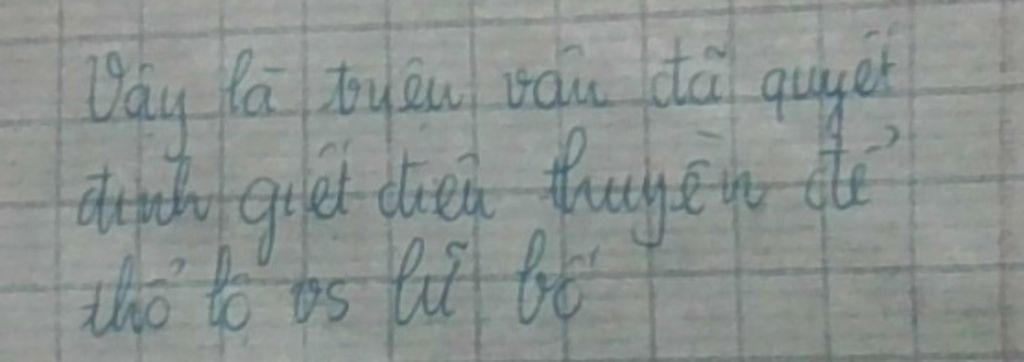 Vậy là triệu vân đã quyết
định giết điêu thuyền để
thổ lộ vs lữ bố